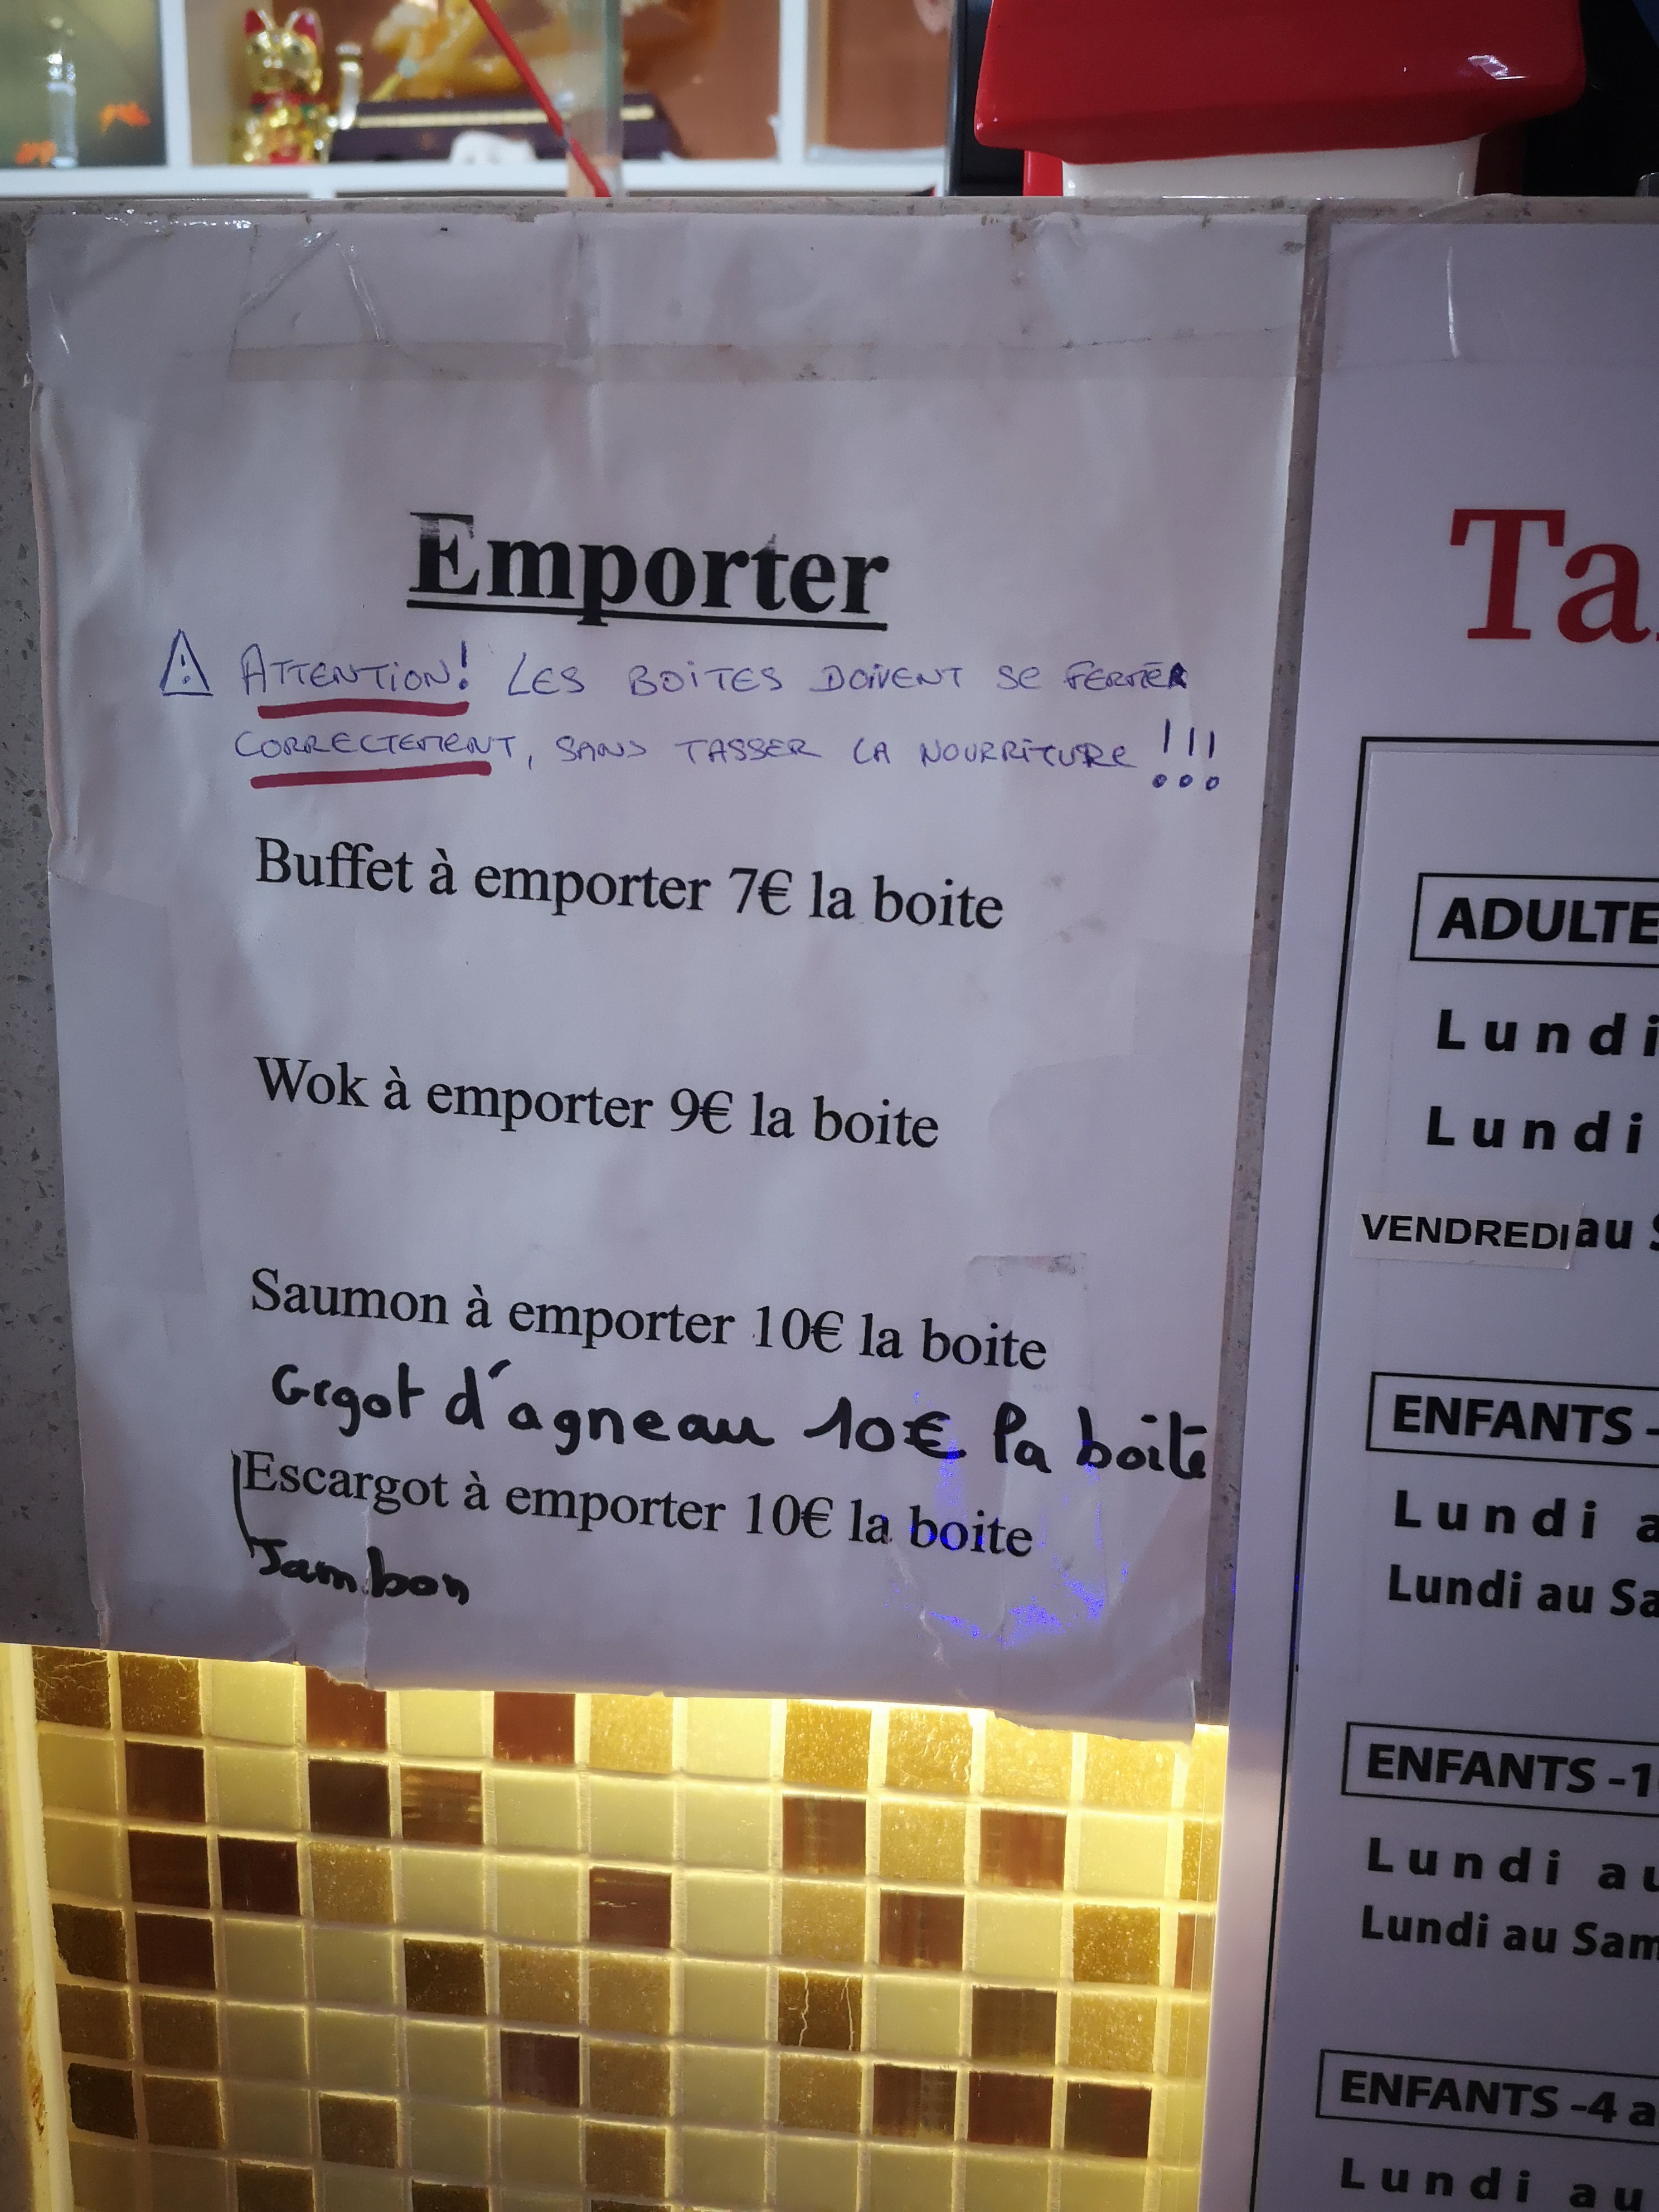 Emporter
⚠ ATTENTION! LES BOITES DOIVENT SE FERMER
CORRECTEMENT, SANS TASSER LA NOURRITURE !!!
Buffet à emporter 7€ la boite
Wok à emporter 9€ la boite
Saumon à emporter 10€ la boite
Gigot d'agneau 10€ la boite
Escargot à emporter 10€ la boite
Jambon
Ta
ADULTE
Lundi
Lundi
VENDREDI au S
ENFANTS -
Lundi a
Lundi au Sa
ENFANTS -1
Lundi au
Lundi au Sam
ENFANTS -4 a
Lundi au